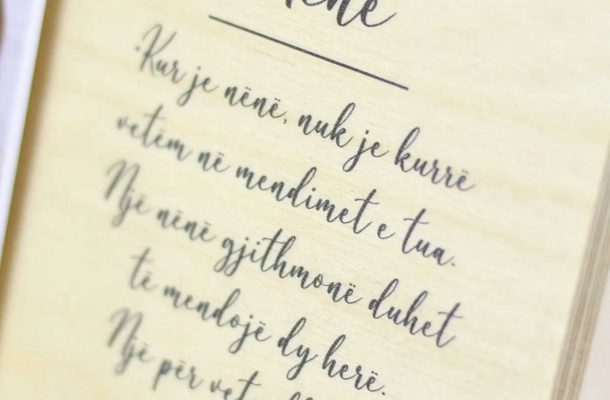 Nënë
"Kur je nënë, nuk je kurrë
vetëm në mendimet e tua.
Një nënë gjithmonë duhet
të mendojë dy herë.
Një për